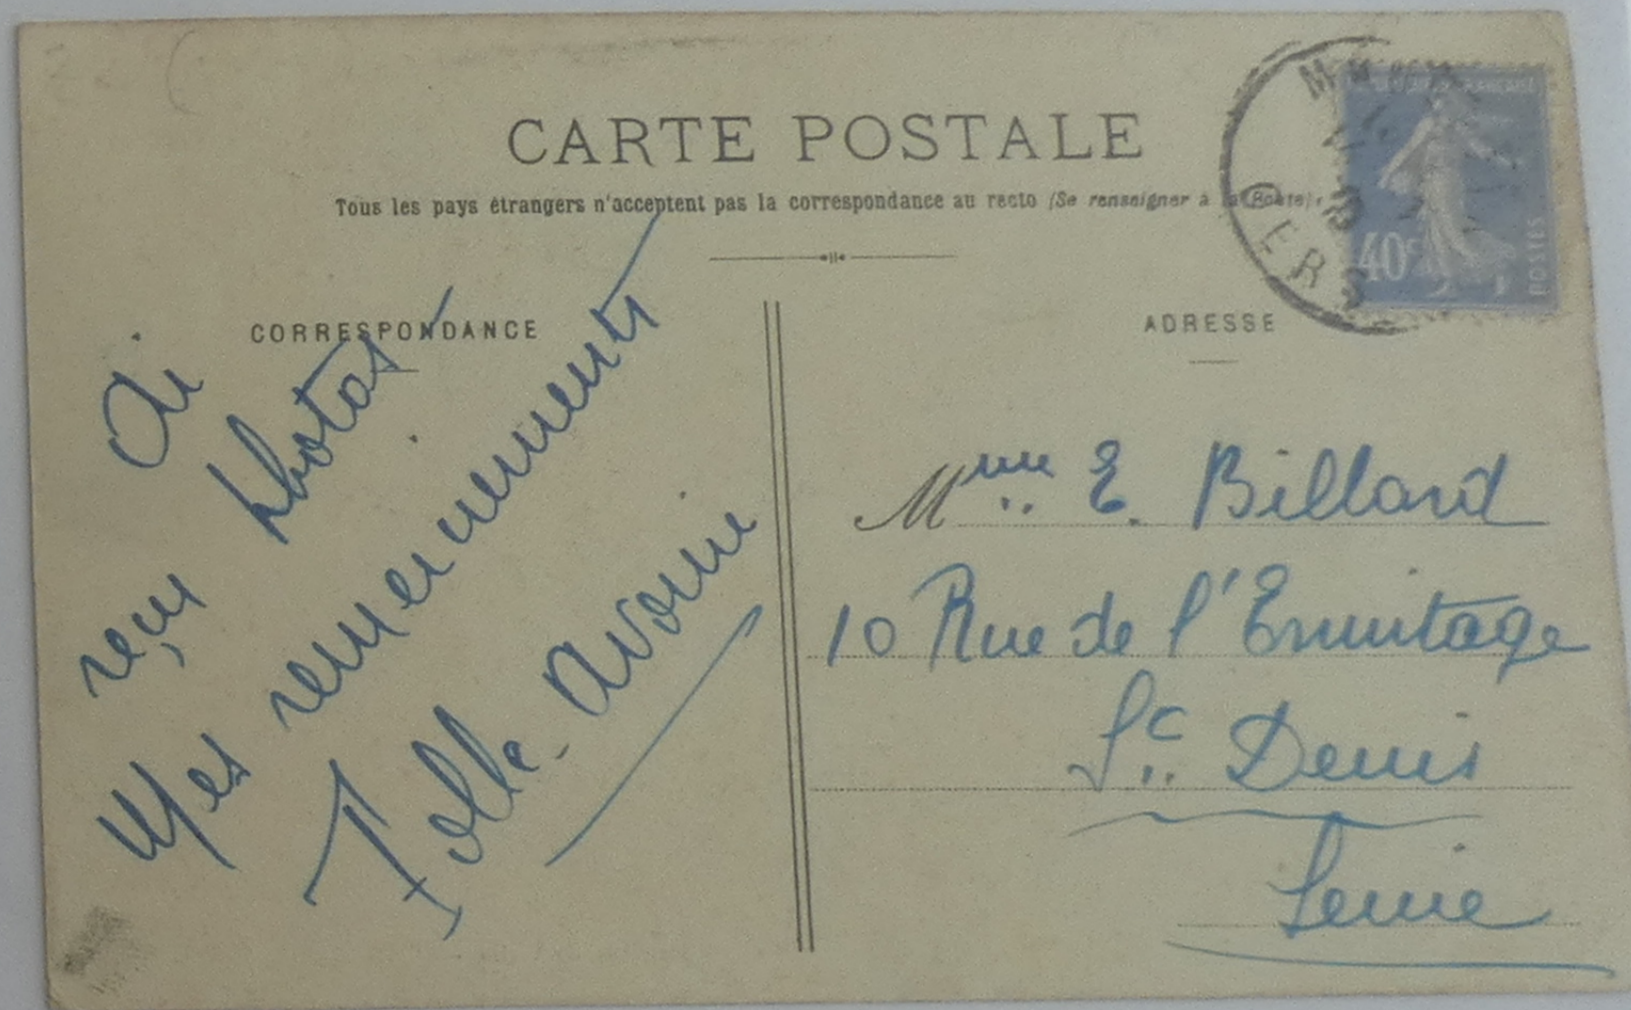 CARTE POSTALE
Tous les pays étrangers n'acceptent pas la correspondance au recto (Se renseigner à la Poste).
CORRESPONDANCE
Ai
reçu photos
Mes remerciements
Folle-avoine
ADRESSE
Mme E. Billard
10 Rue de l'Ermitage
St Denis
Seine
GERS
40c
POSTES